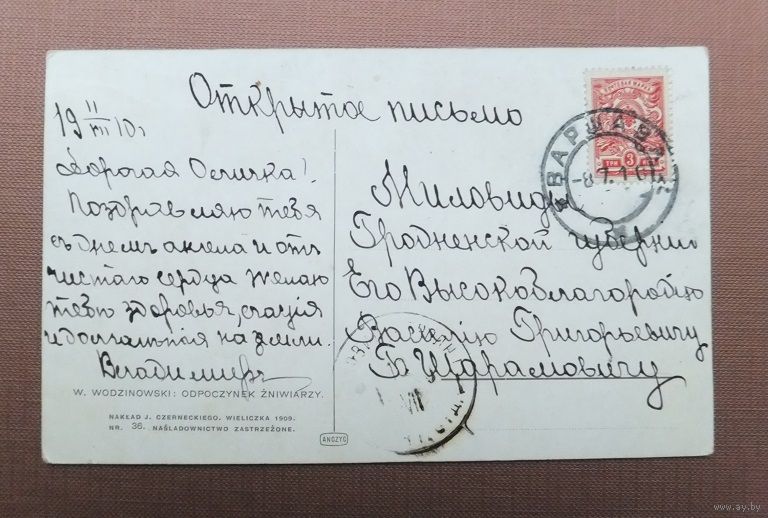 Открытое письмо
19 11/VII 10 г
Дорогая Оличка!
Поздравляю тебя
съ днемъ ангела и отъ
чистаго сердца желаю
тебѣ здоровья, счастія
и на земли.
Владимиръ
W. WODZINOWSKI: ODPOCZYNEK ŻNIWIARZY.
NAKŁAD J. CZERNECKIEGO. WIELICZKA 1909.
NR. 36. NAŚLADOWNICTWO ZASTRZEŻONE.
ANCZYC
ПОЧТОВАЯ МАРКА
ТРИ 3 КОП
ВАРШАВА
-8.7.10
Миловиды
Гродненской губерніи
Его Высокоблагородію
Василію Григорьевичу
Г-ну Шарамовичу
VII
www.ay.by